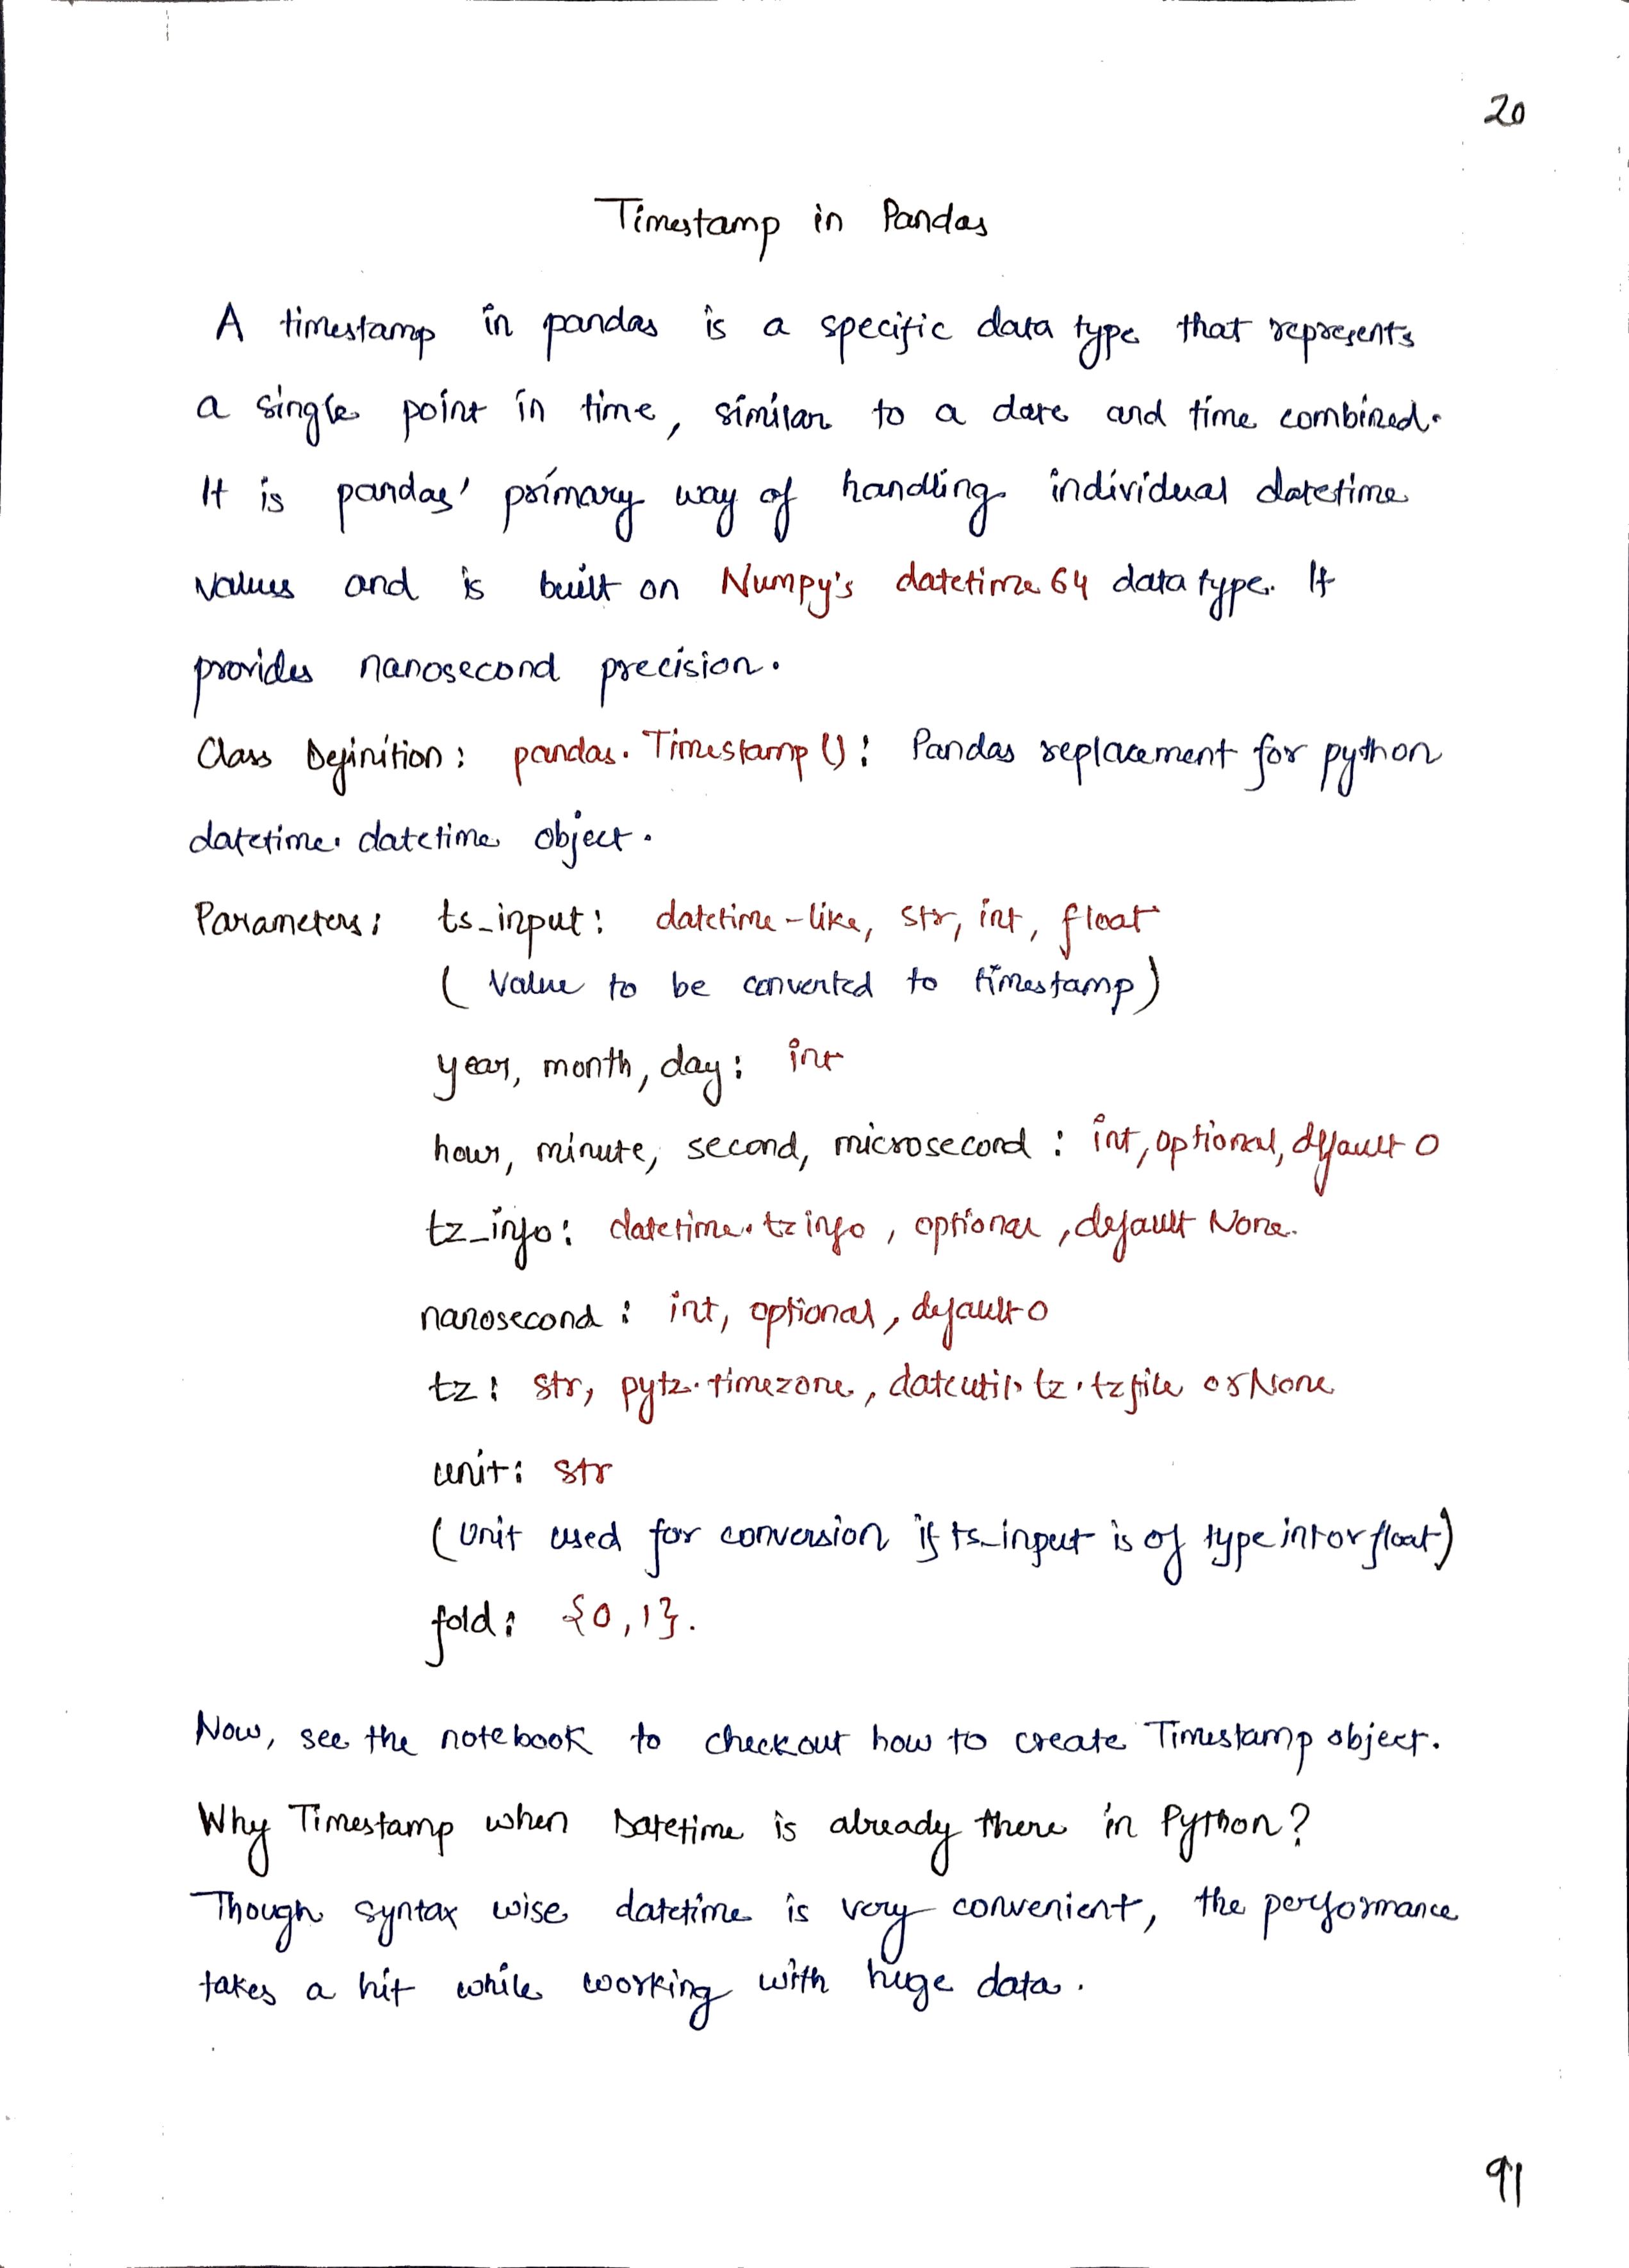 20
Timestamp in Pandas
A timestamp in pandas is a specific data type that represents
a single point in time, similar to a date and time combined.
It is pandas' primary way of handling individual datetime
values and is built on Numpy's datetime64 data type. It
provides nanosecond precision.
Class Definition: pandas.Timestamp(): Pandas replacement for python
datetime.datetime object.
Parameters: ts_input: datetime-like, str, int, float
(Value to be converted to timestamp)
year, month, day: int
hour, minute, second, microsecond: int, optional, default 0
tz_info: datetime.tzinfo, optional, default None.
nanosecond: int, optional, default 0
tz: str, pytz.timezone, dateutil.tz.tzfile or None
unit: str
(Unit used for conversion if ts_input is of type int or float)
fold: {0,1}.
Now, see the notebook to checkout how to create Timestamp object.
Why Timestamp when Datetime is already there in Python?
Though syntax wise datetime is very convenient, the performance
takes a hit while working with huge data.
91